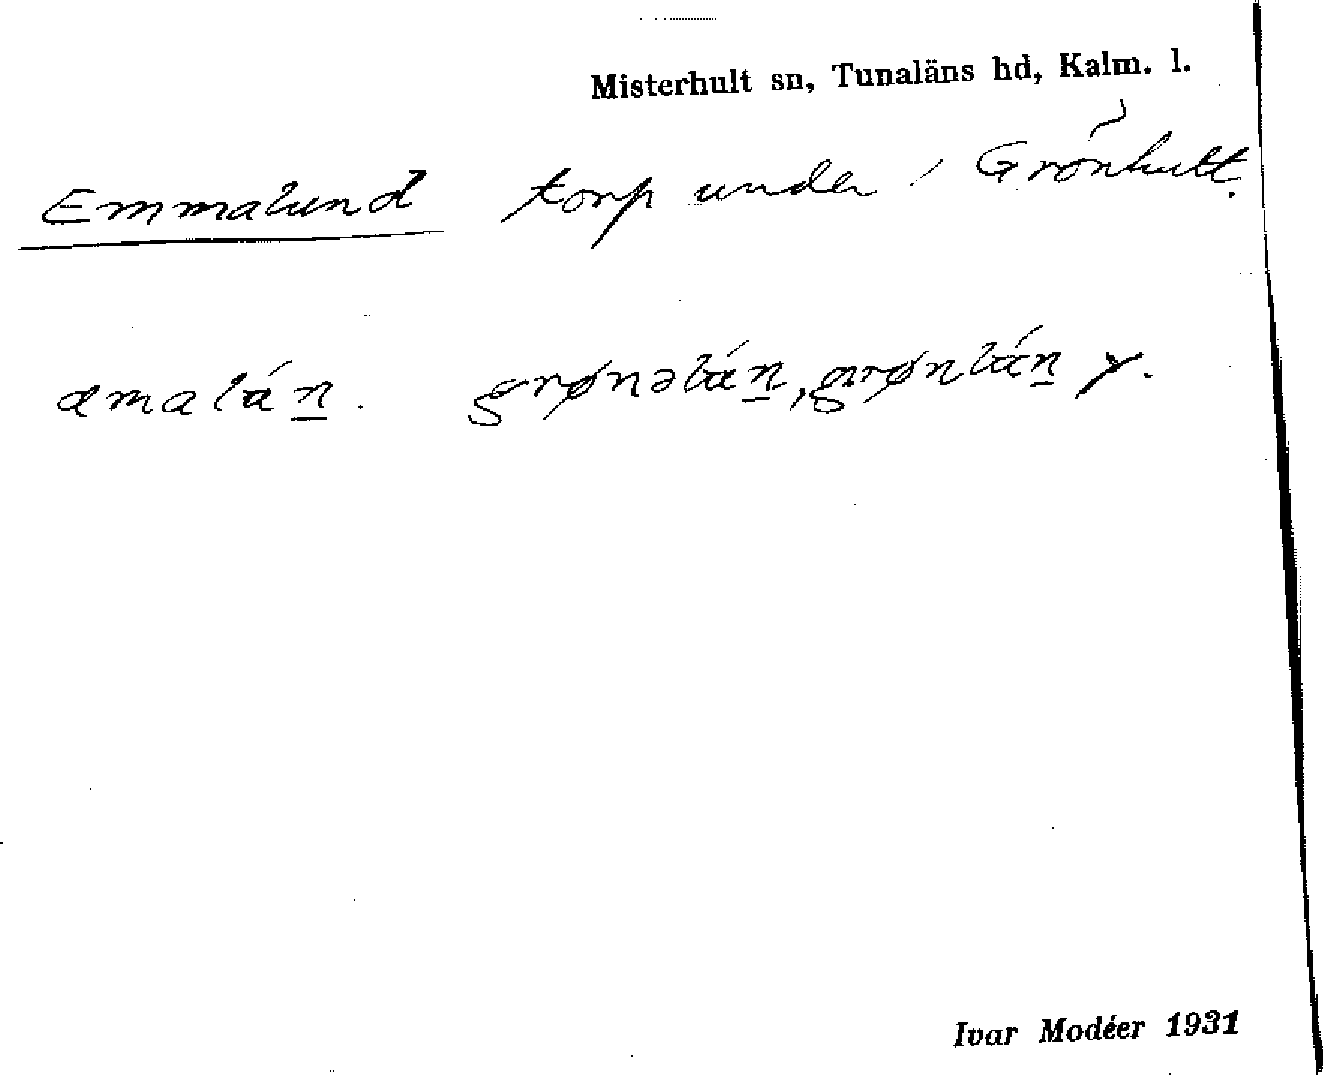 Misterhult sn, Tunaläns hd, Kalm. l.
Emmalund torp under Grönhult.
amalán. grønəlán, grønlán y.
Ivar Modéer 1931